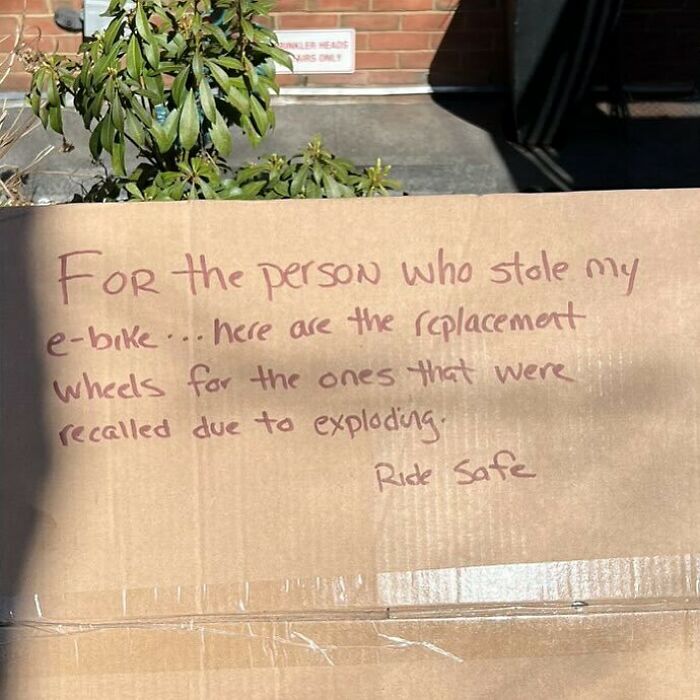 HEADS
ONLY
FOR the person who stole my
e-bike... here are the replacement
wheels for the ones that were
recalled due to exploding.
Ride Safe